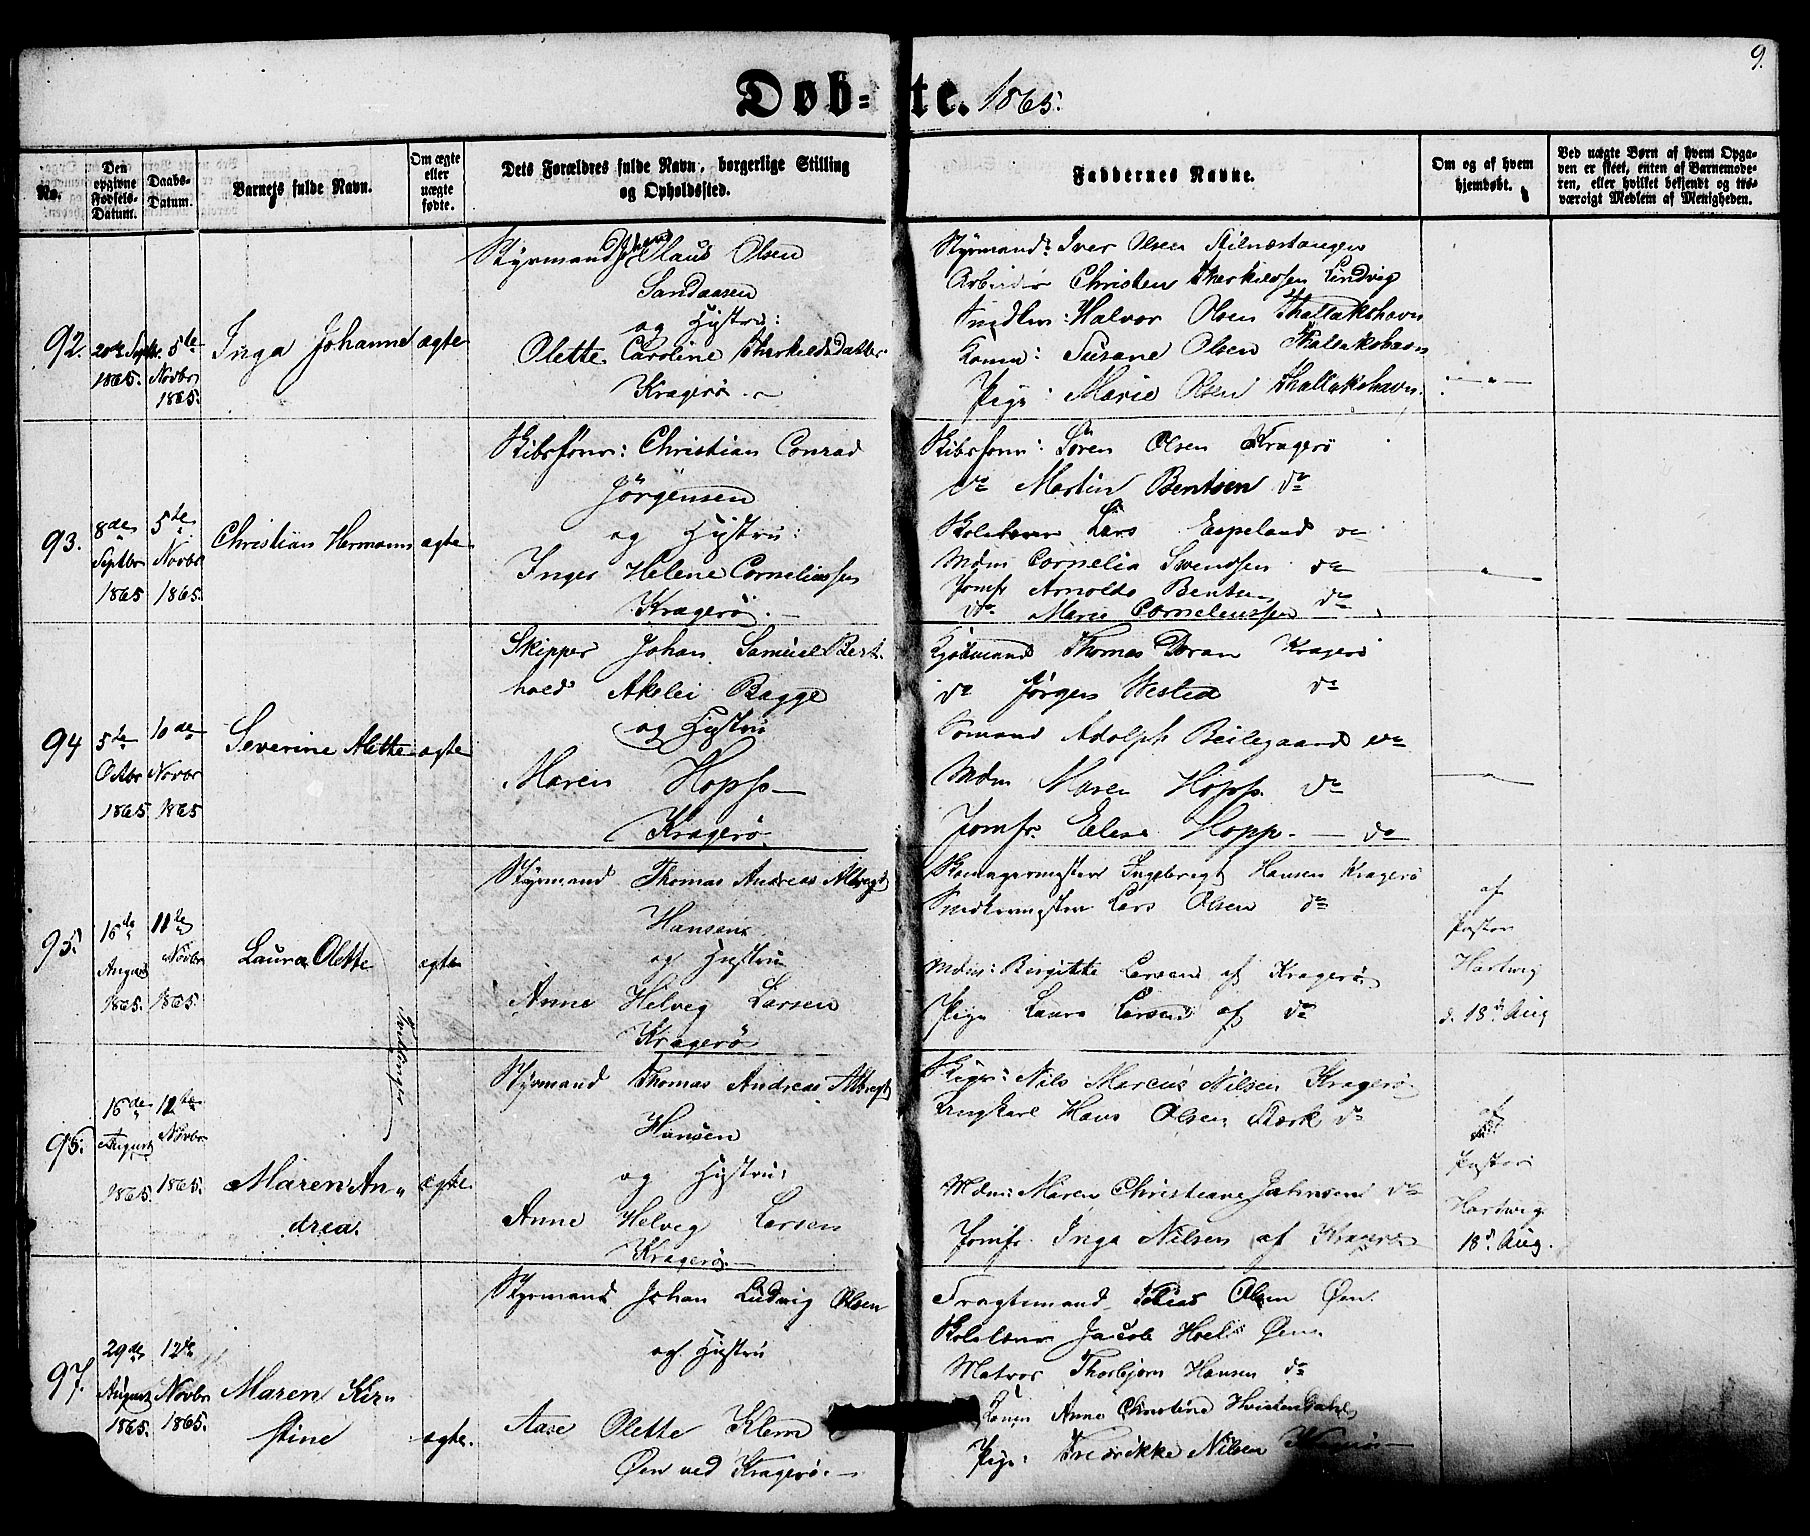 9.
Døb-te. 1865.
No.
Den opgivne Fødsels-Datum.
Daabs-Datum.
Barnets fulde Navn.
Om ægte eller uægte fødte.
Dets Forældres fulde Navn, borgerlige Stilling og Opholdssted.
Faddernes Navne.
Om og af hvem hjemdøbt.
Ved uægte Børn af hvem Opga-
ven er skeet, enten af Barnemode-
ren, eller hvilket bekjendt og tro-
værdigt Medlem af Menigheden.
92.
Septbr. 1865.
5te Novbr 1865.
Inga Johanne
ægte
Styrmand Johan Olaus Olsen
Sandaasen
og Hustru:
Olette Caroline Therkildsdatter
Kragerø.
Styrmand: Iver Olsen
Arbeider Christen Therkildsen Lindvig
Halvor Olsen Thallakshavn
Kone: Susane Olsen Thalakshavn
Pige: Marie Olsen Thallakshavn.
93.
8de Septbr 1865
5te Novbr 1865.
Christian Hermann
ægte
Skibsfører: Christian Conrad
Jørgensen
og Hustru:
Inger Helene Corneliussen
Kragerø.
Skibsfører: Søren Olsen Kragerø
do Martin Bentsen do
Skolelærer Lars Espeland do
Mdm Cornelia Svendsen do
Jomfr Arnolde Bentsen do
do Marie Corneliussen
94
5te Octbr 1865
10de Novbr 1865
Severine Alette
ægte
Skipper Johan Samuel Bert-
hold Akelei Bagge
og Hustru
Maren Hopp
Kragerø.
Kjøbmand Thomas Doran Kragerø
do Jørgen Wested do
Sømand Adolph Beilegaard do
Mdm Maren Hopp. do
Jomfr. Elise Hopp. do
95.
16de August 1865.
11te Novbr 1865.
Laura Olette
Tvillinger
ægte
Styrmand Thomas Andreas Albregt
Hansen
og Hustru
Anne Helveg Larsen
Kragerø
Ingebregt Hansen Kragerø
Lars Olsen do
Mdm: Birgitte Larsen af Kragerø
Pige Laura Larsen af do
af
Pastor
Hartwig
d. 18de Aug
95.
16de August 1865.
12te Novbr 1865.
Maren An-
drea.
ægte.
Styrmand Thomas Andreas Albregt
Hansen
og Hustru:
Anne Helveg Larsen
Kragerø
Nils Marcus Nilsen Kragerø
Ungkarl Hans Olsen Stærk do
Mdm: Maren Christiane Jahnsen do
Jomfr. Inga Nilsen af Kragerø
af
Pastor
Hartwig
18de Aug.
97.
29de August 1865.
12te Novbr 1865.
Maren Kir-
stine
ægte.
Styrmand Johan Ludvig Olsen
og Hustru
Aase Olette Klem
Øen ved Kragerø.
Fragtemand Tobias Olsen Øen.
Skolelærer Jacob Øen.
Matros Thorbjørn Hansen do
Konen Anne Christine Hvistendahl
Pige: Fredrikke Nilsen Kragerø